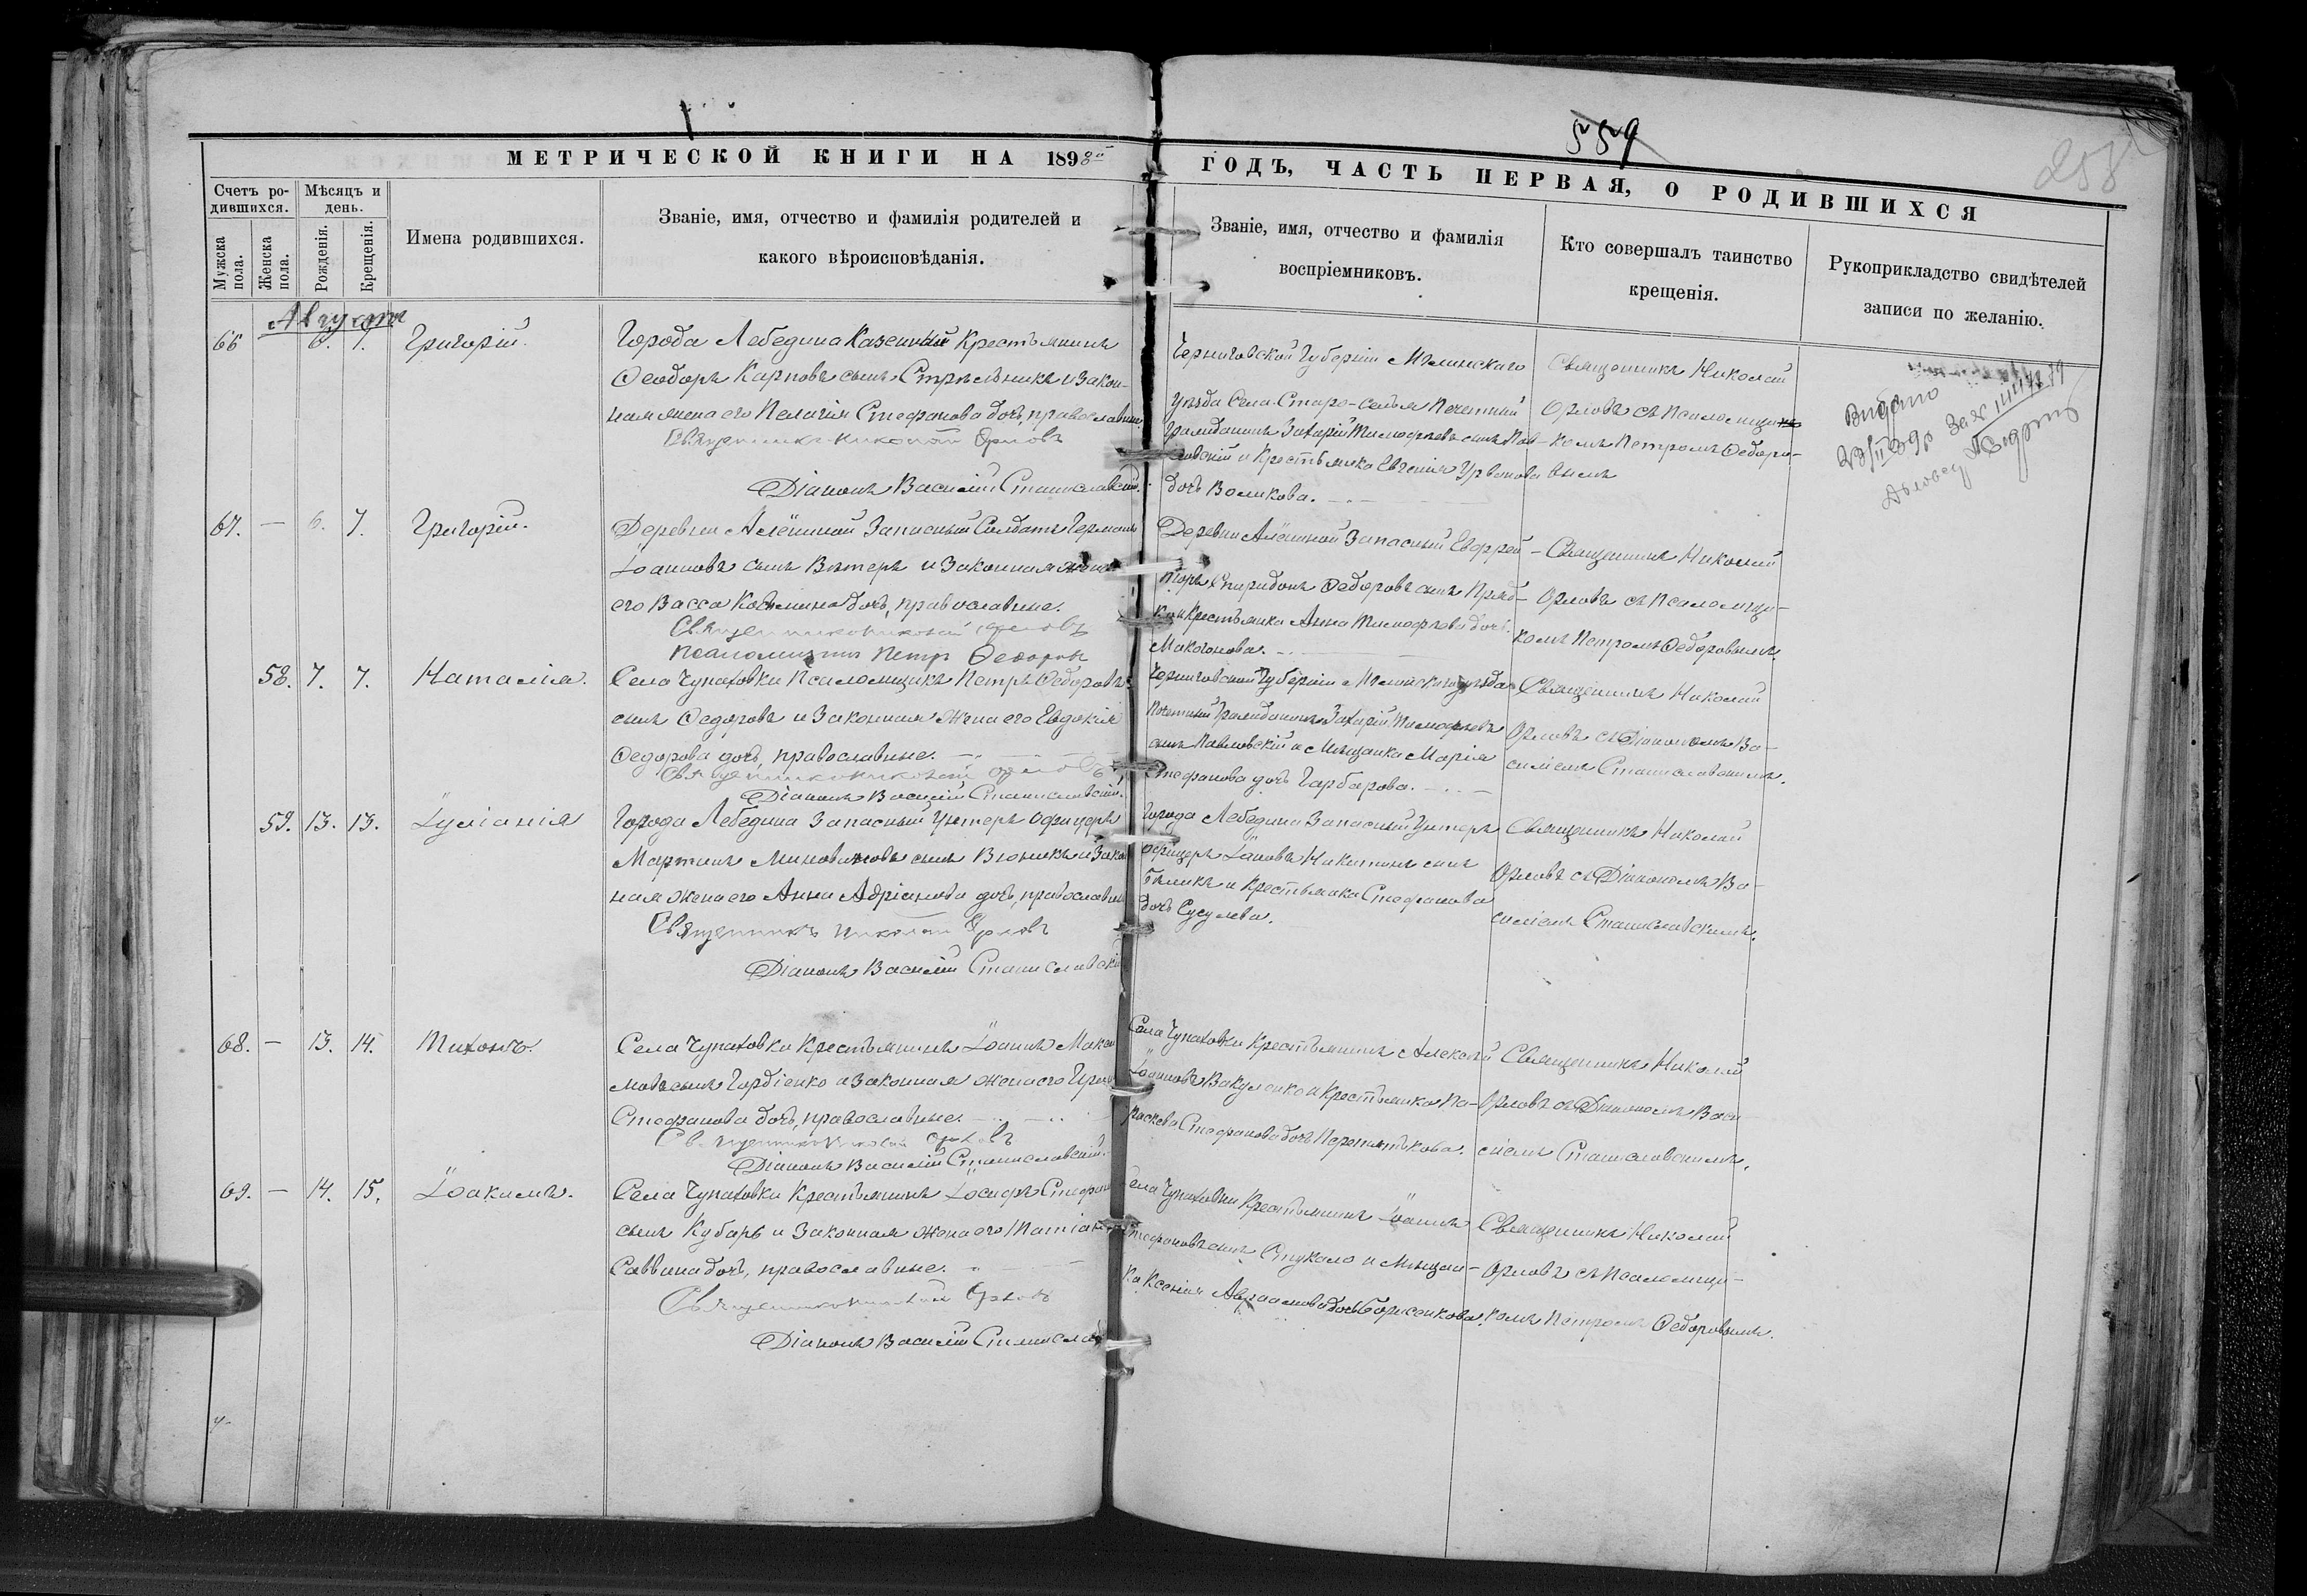 559
258
МЕТРИЧЕСКОЙ КНИГИ НА 1898й
ГОДЪ, ЧАСТЬ ПЕРВАЯ, О РОДИВШИХСЯ
Счетъ ро-
дившихся.
Мѣсяцъ и
день.
Мужска
пола.
Женска
пола.
Рожденія.
Крещенія.
Имена родившихся.
Званіе, имя, отчество и фамилія родителей и
какого вѣроисповѣданія.
Званіе, имя, отчество и фамилія
воспріемниковъ.
Кто совершалъ таинство
крещенія.
Рукоприкладство свидѣтелей
записи по желанію.
Августъ
66 6. 7. Григорій.
Города Лебедина Казенный Крестьянинъ
Ѳеодоръ Карповъ сынъ Стрѣльникъ и закон-
ная жена его Пелагія Стефанова дочь, православные
Священникъ Николай Орловъ
Діаконъ Василій Станиславскій.
Черниговской Губерніи Мглинскаго
уѣзда Села Старо-селья Почетный
Гражданинъ Захарій Тимофѣевъ сынъ Пав-
ловскій и Крестьянка Евгенія Урванова
дочь Воликова.
Священникъ Николай
Орловъ съ Псаломщи-
комъ Петромъ Ѳедоро-
вымъ
Видано
67. — 6. 7. Григорій.
Деревни Алёшиной Запасный Солдатъ Германъ
Іоанновъ сынъ Вѣтеръ и Законная жена
его Васса Косьмина дочь, православные.
Священникъ Николай Орловъ
Псаломщикъ Петръ Ѳедоровъ
Деревни Алёшиной Запасный Ефрей-
торъ Спиридонъ Ѳедоровъ сынъ Прядь-
ко и Крестьянка Анна Тимофѣева дочь
Макогонова.
Священникъ Николай
Орловъ съ Псаломщи-
комъ Петромъ Ѳедоровымъ.
58. 7. 7. Наталія.
Села Чупаховки Псаломщикъ Петръ Ѳедоровъ
сынъ Ѳедоровъ и Законная жена его Евдокія
Ѳедорова дочь, православные.
Священникъ Николай Орловъ
Діаконъ Василій Станиславскій.
Черниговской Губерніи Мглинскаго уѣзда
Почетный Гражданинъ Захарій Тимофѣевъ
сынъ Павловскій и Мѣщанка Марія
Стефанова дочь Гарбарова.
Священникъ Николай
Орловъ съ Діакономъ Ва-
силіемъ Станиславскимъ.
59. 13. 13. Іуліанія
Города Лебедина Запасный Унтеръ офицеръ
Мартинъ сынъ Вюникъ и Закон
ная жена его Анна Адріанова дочь, православные
Священникъ Николай Орловъ
Діаконъ Василій Станиславскій
Города Лебедина Запасный Унтеръ
офицеръ Іаковъ Никитинъ сынъ
Бѣликъ и Крестьянка Стефанова
дочь Сусулева.
Священникъ Николай
Орловъ съ Діакономъ Ва-
силіемъ Станиславскимъ.
68. — 13. 14. Тихонъ.
Села Чупаховки Крестьянинъ Іоаннъ Макси
мовъ сынъ Гордіенко и Законная жена его
Стефанова дочь, православные.
Священникъ Николай Орловъ
Діаконъ Василій Станиславскій.
Села Чупаховки Крестьянинъ Алексій
Іоанновъ Вакуленко и Крестьянка Па-
раскева Стефанова дочь Перепятькова.
Священникъ Николай
Орловъ съ Діакономъ Васи
ліемъ Станиславскимъ.
69. — 14. 15. Іоакимъ.
Села Чупаховки Крестьянинъ Іосифъ Стефановъ
сынъ Кубарь и Законная жена его Татіана
Саввина дочь, православные.
Священникъ Николай Орловъ
Діаконъ Василій Станислав
Села Чупаховки Крестьянинъ Іоаннъ
Стефановъ сынъ Стукало и Мѣщан-
ка Ксенія Авраамова дочь Борсенкова.
Священникъ Николай
Орловъ съ Псаломщи-
комъ Петромъ Ѳедоровымъ.